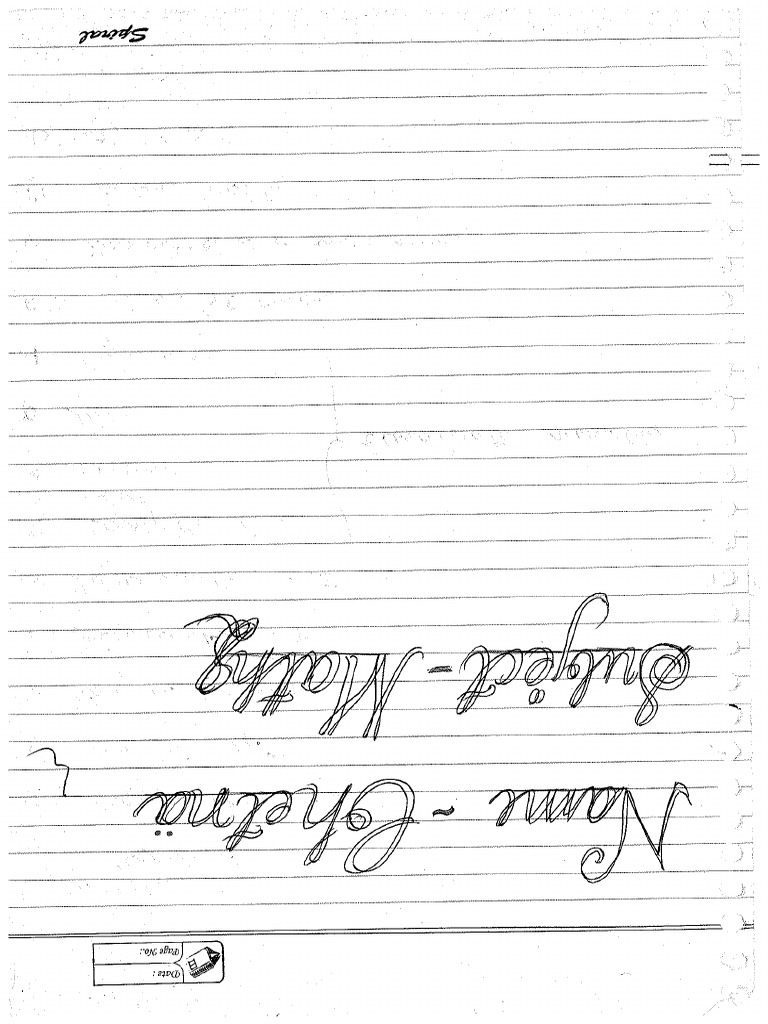 Date :
Page No.:
Name - Chetna
Subject - Maths
Spiral